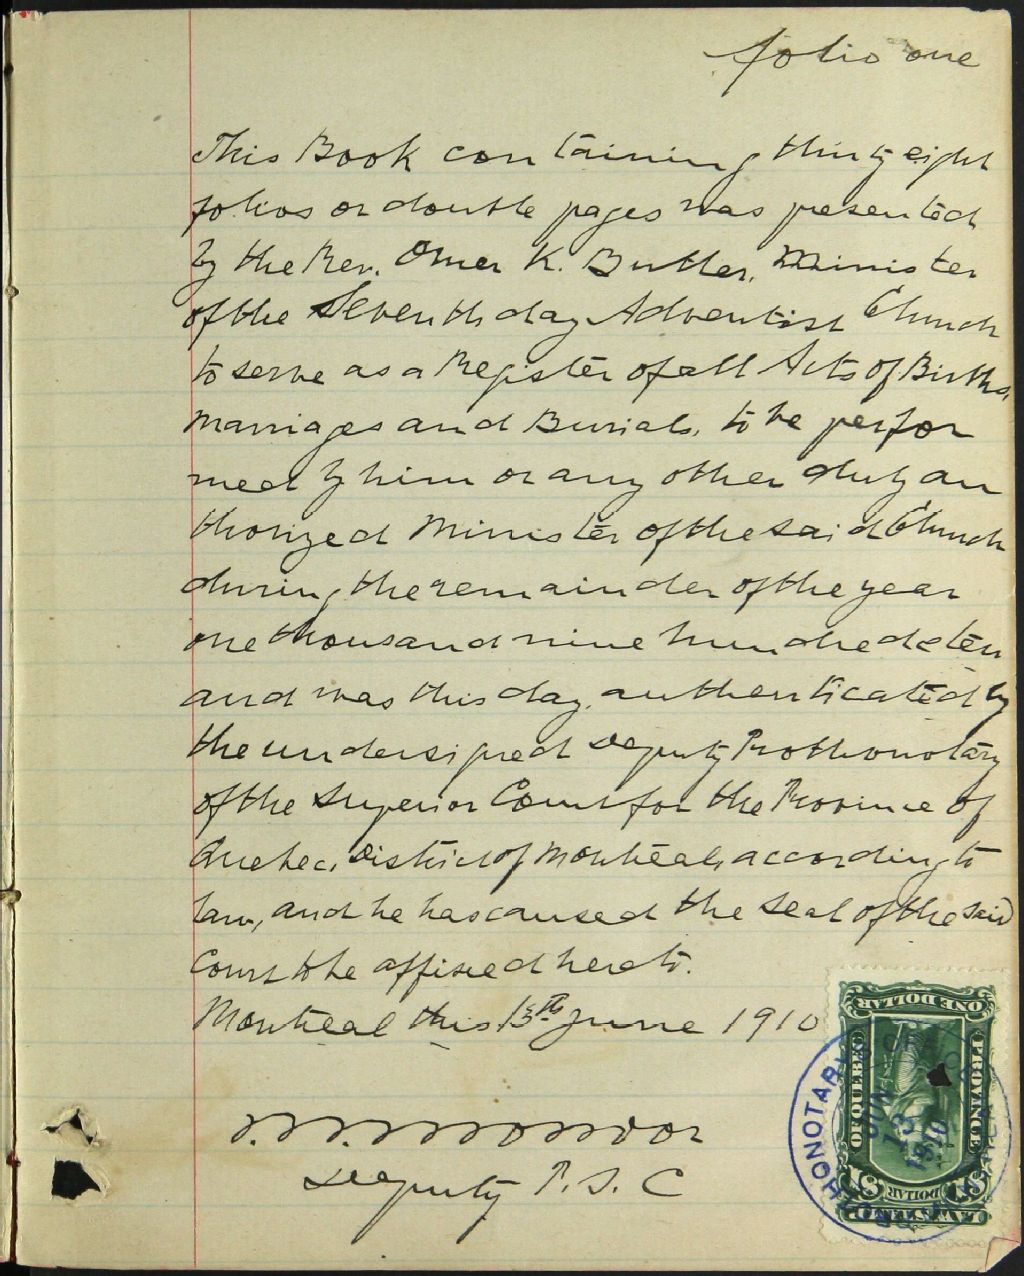 folio one
This Book containing thirty eight
folios or double pages was presented
by the Rev. Omer K. Butler, Minister
of the Seventh day Adventist Church
to serve as a Register of all Acts of Births,
Marriages and Burials, to be perfor
med by him or any other duly au
thorized Minister of the said Church
during the remainder of the year
one thousand nine hundred & ten
and was this day authenticated by
the undersigned Deputy Prothonotary
of the Superior Court for the Province of
Quebec, District of Montreal, according to
law, and he has caused the seal of the said
Court to be affixed hereto.
Montreal this 13th June 1910
Deputy P. S. C
ONE DOLLAR
PROVINCE
OF QUEBEC
$1
DOLLAR
$1
LAW STAMP
PROTHONOTARY'S OFFICE
JUN
13
1910
MONTREAL